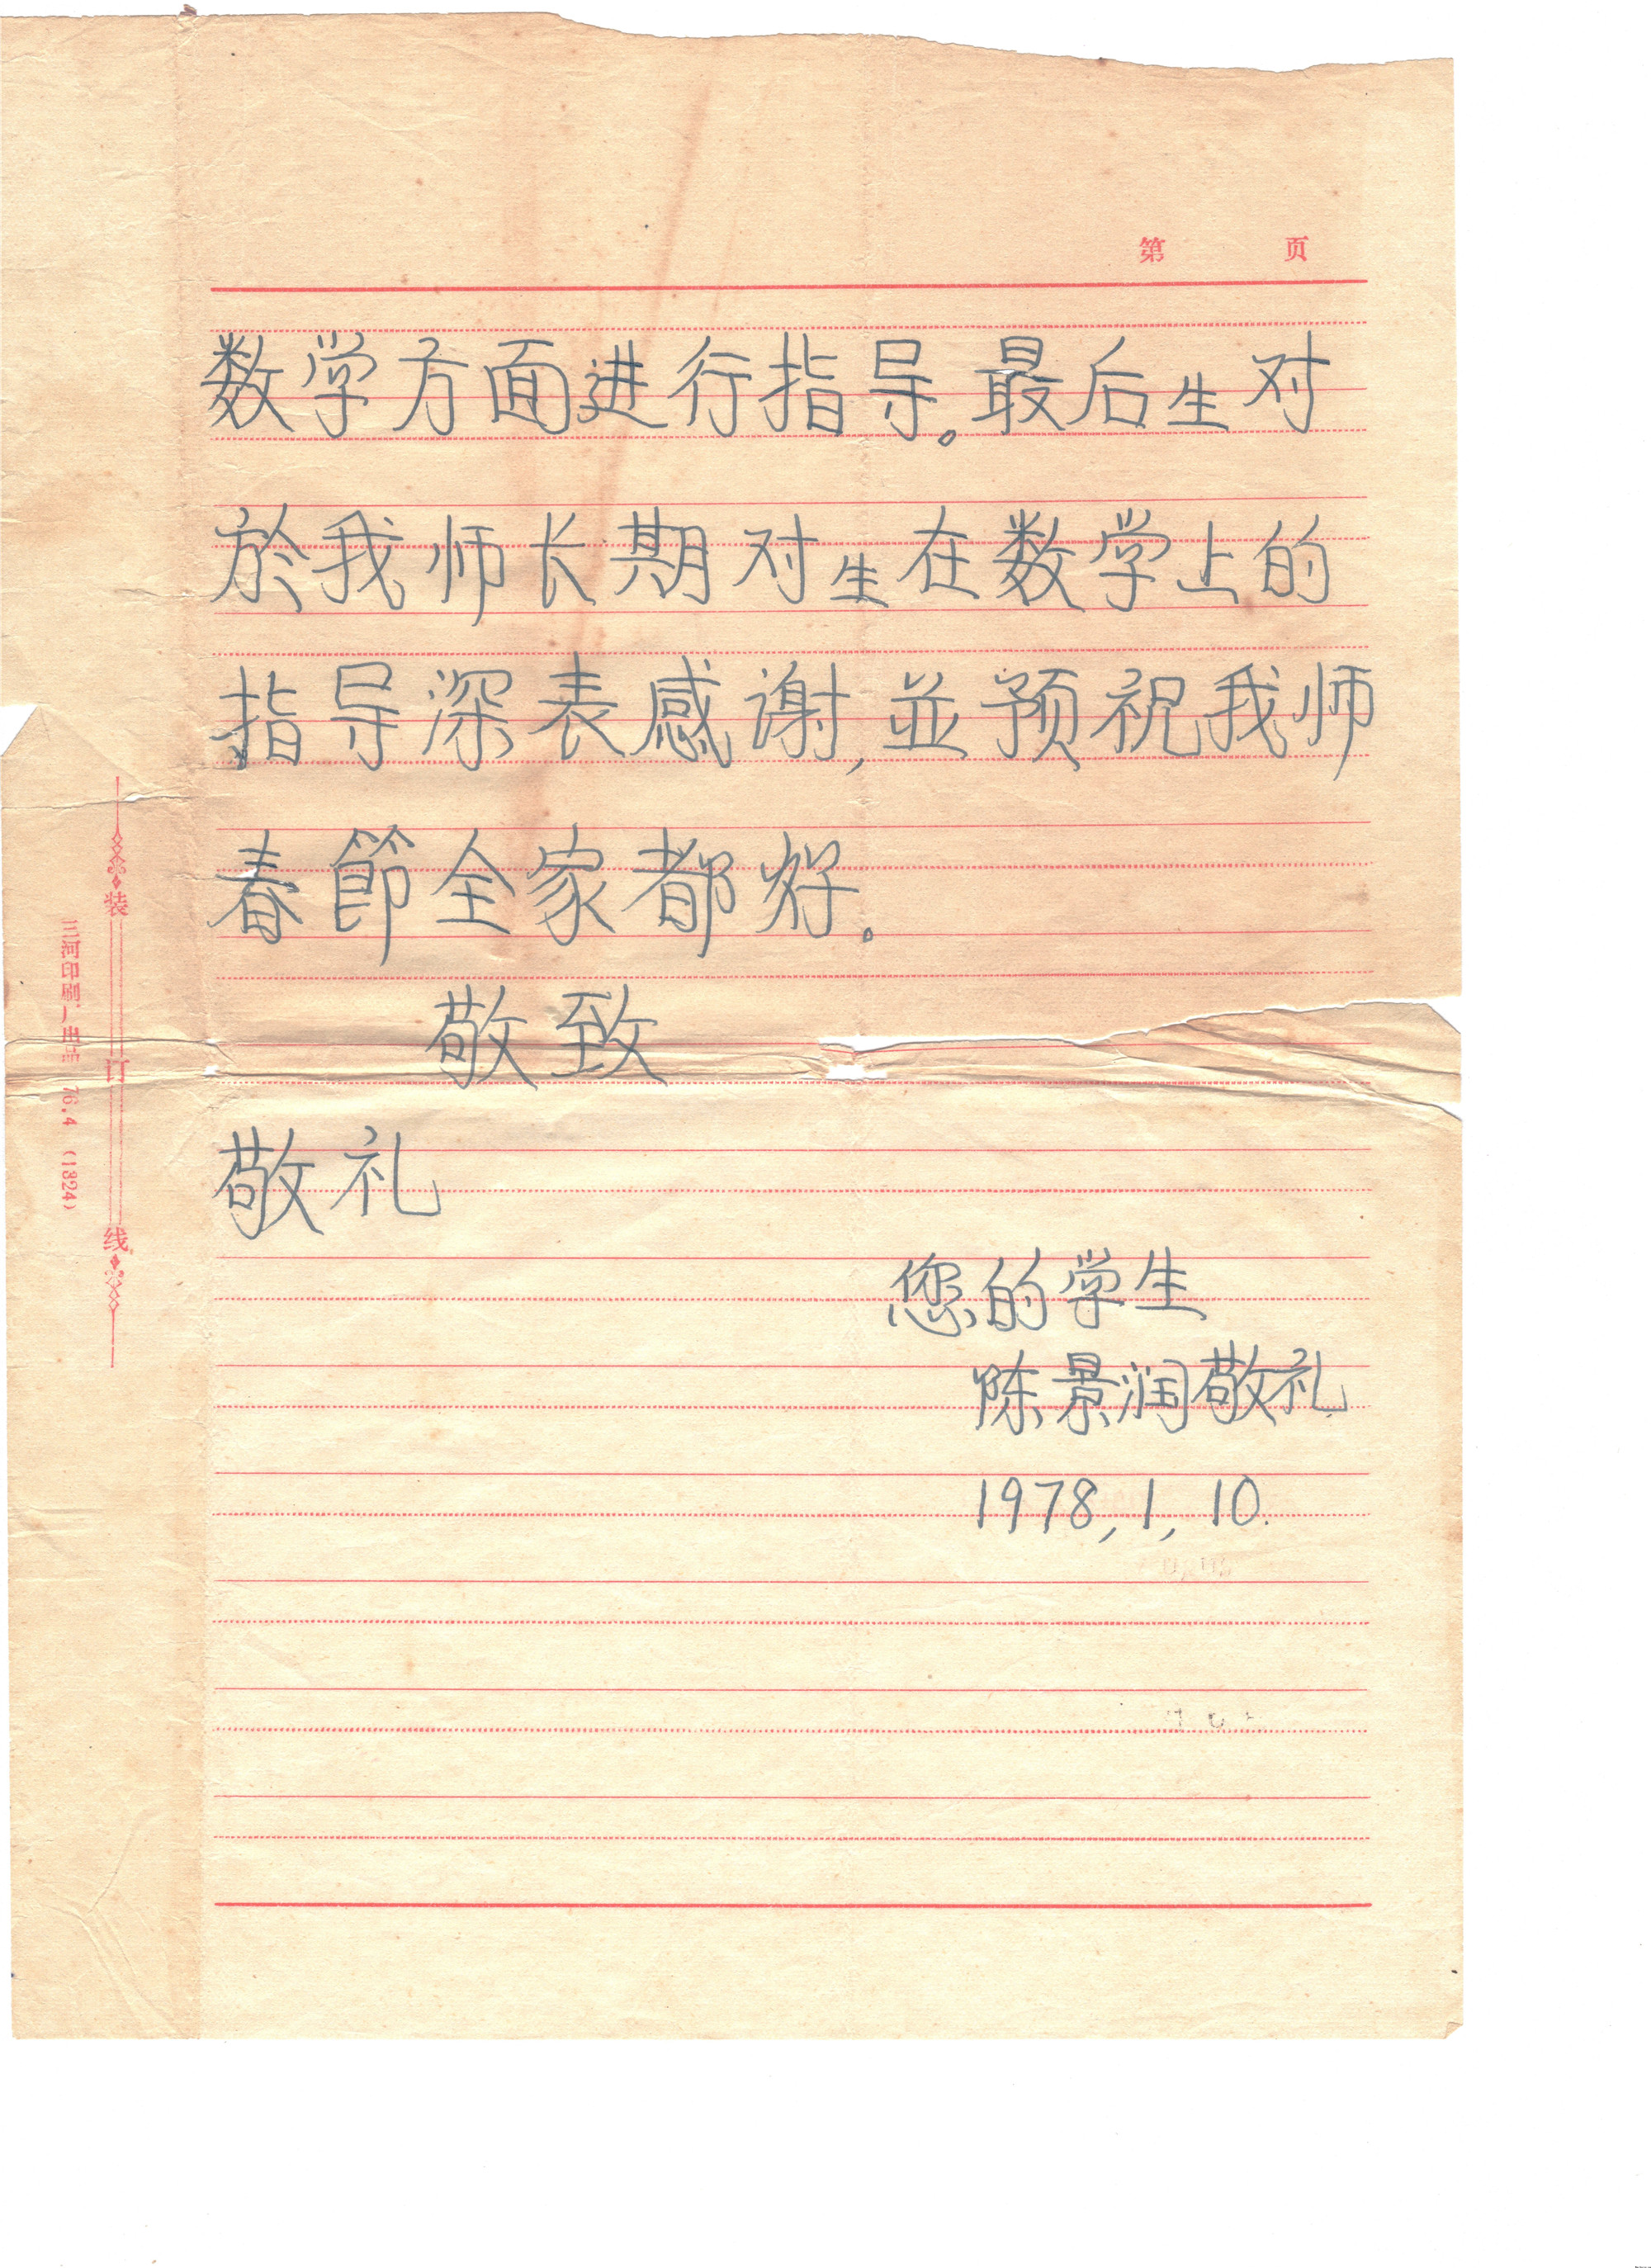 第 页
数学方面进行指导。最后生对
於我师长期对生在数学上的
指导深表感谢,並预祝我师
春節全家都好。
敬致
敬礼
您的学生
陈景润敬礼
1978,1,10.
装 订 线
76.4 (1324)